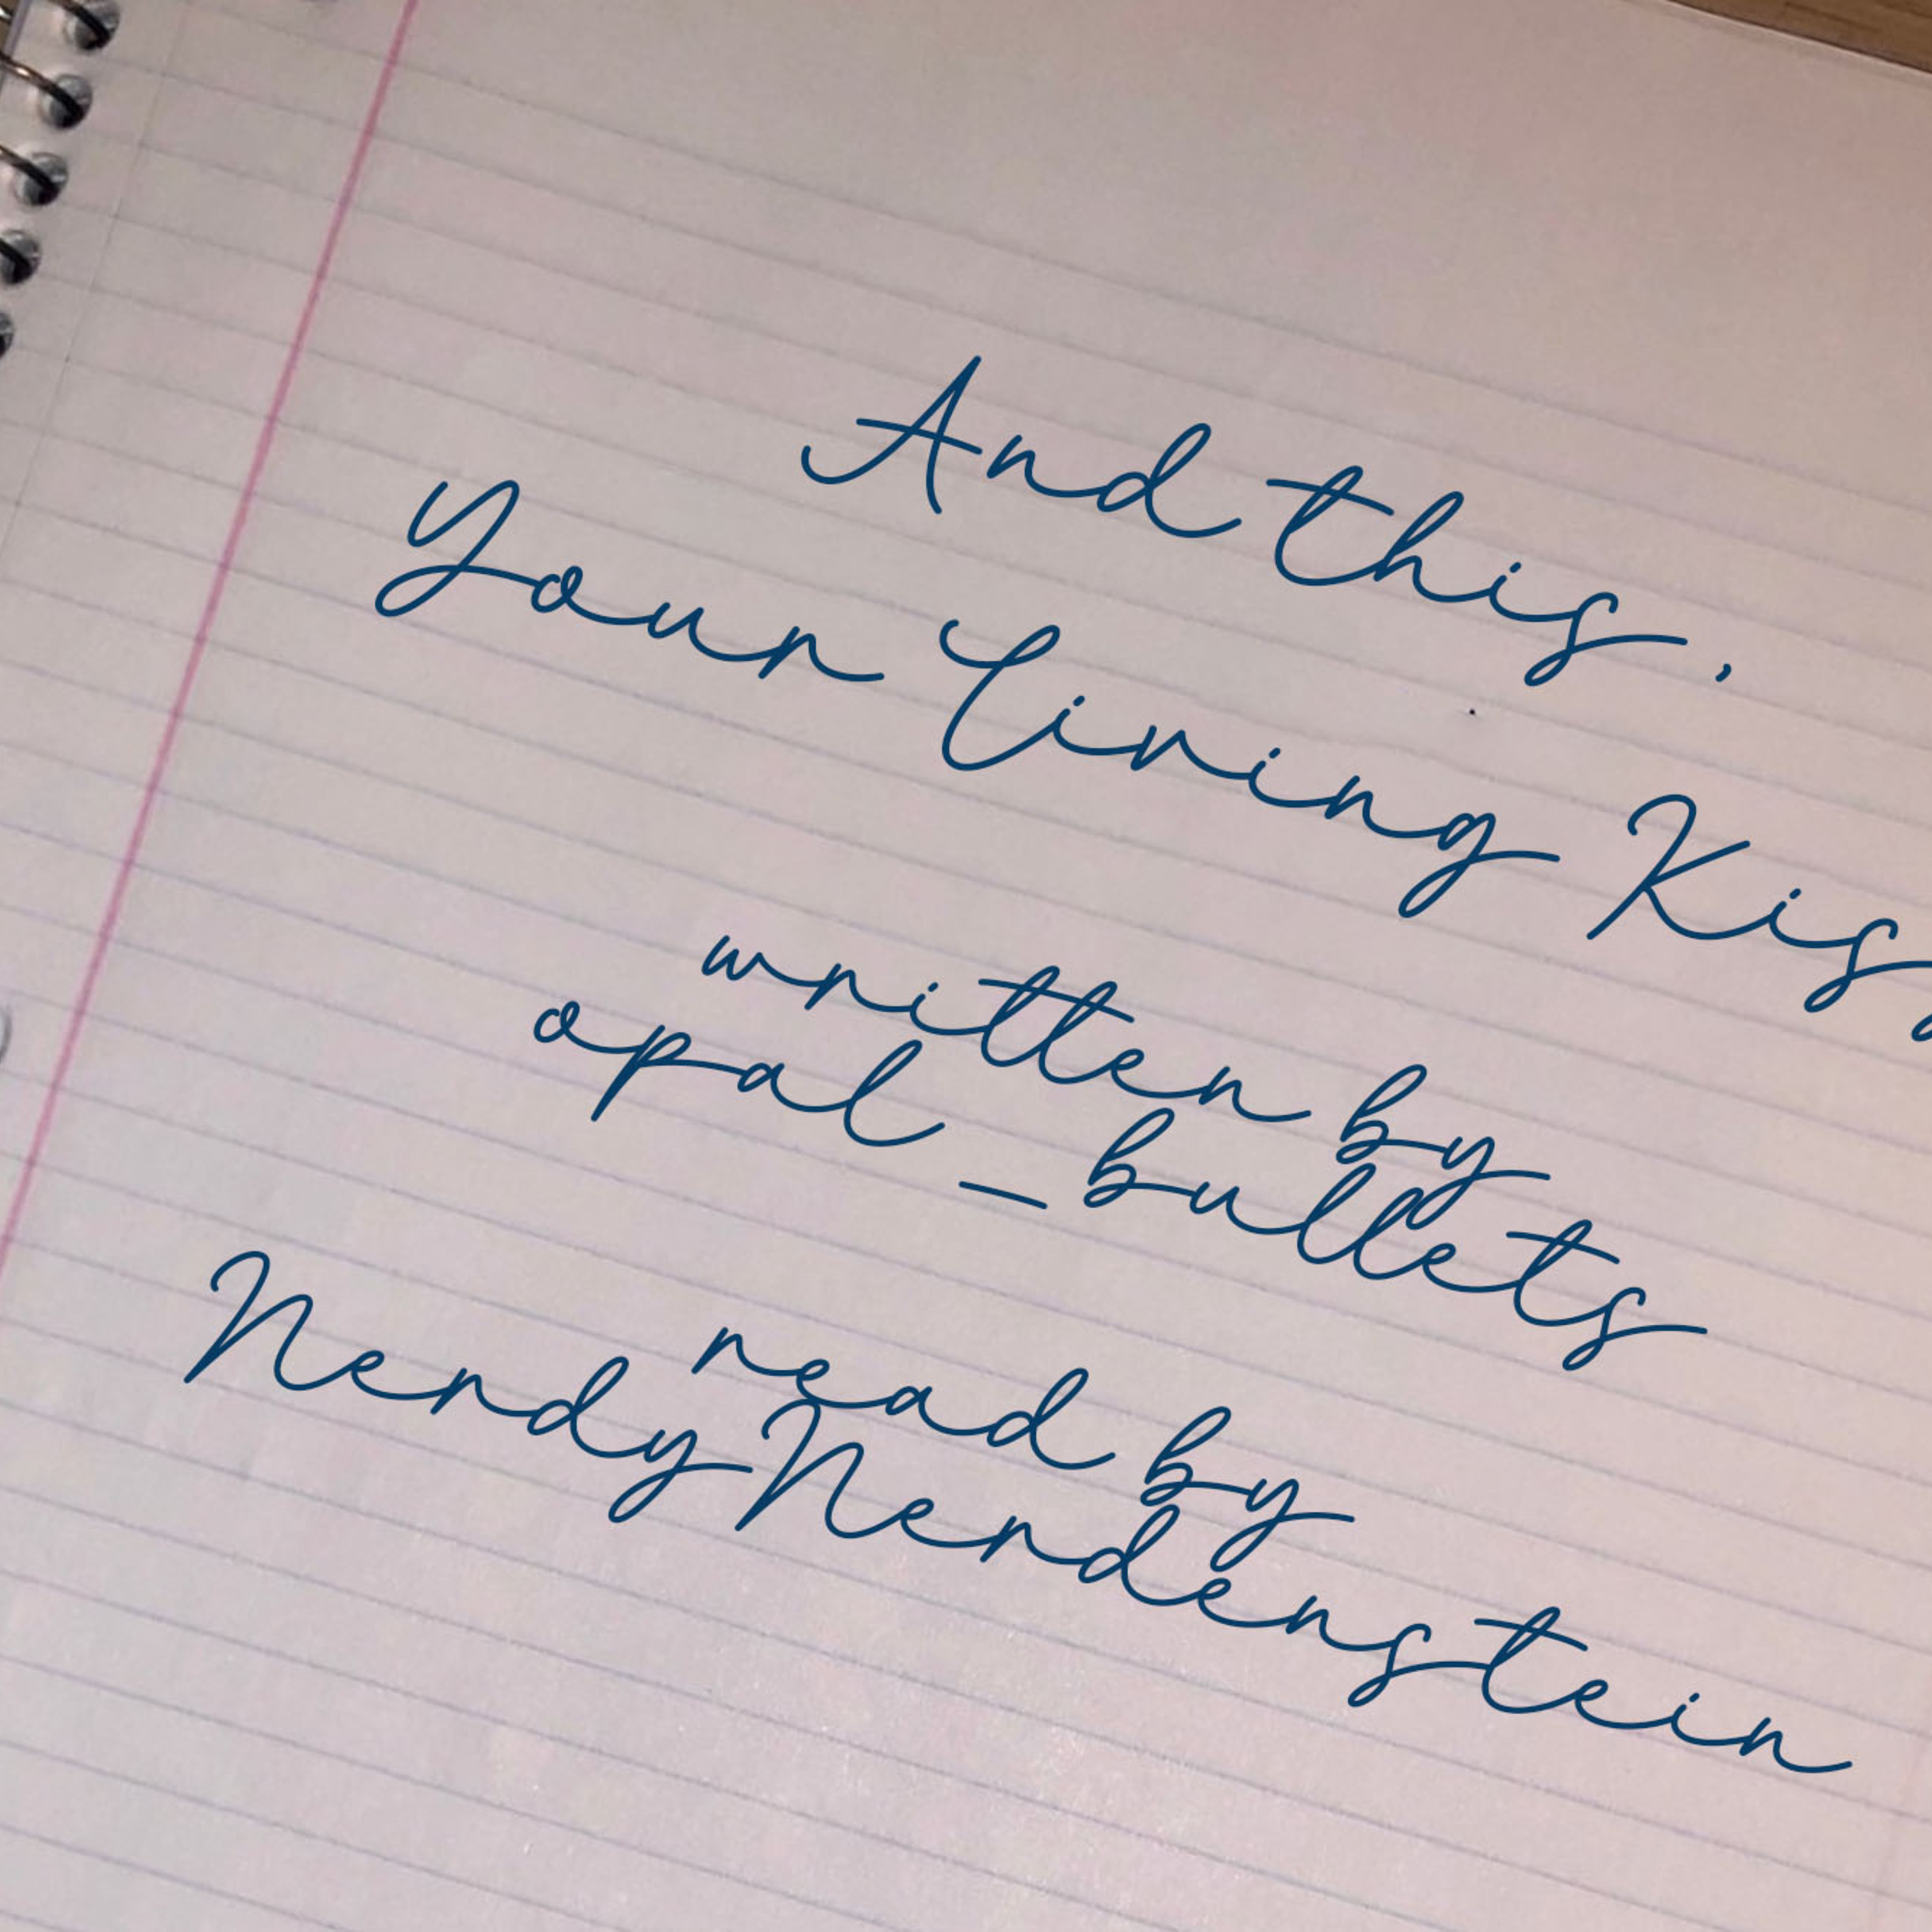 And this,
Your Living Kis
written by
opal_bullets
read by
NerdyNerdenstein